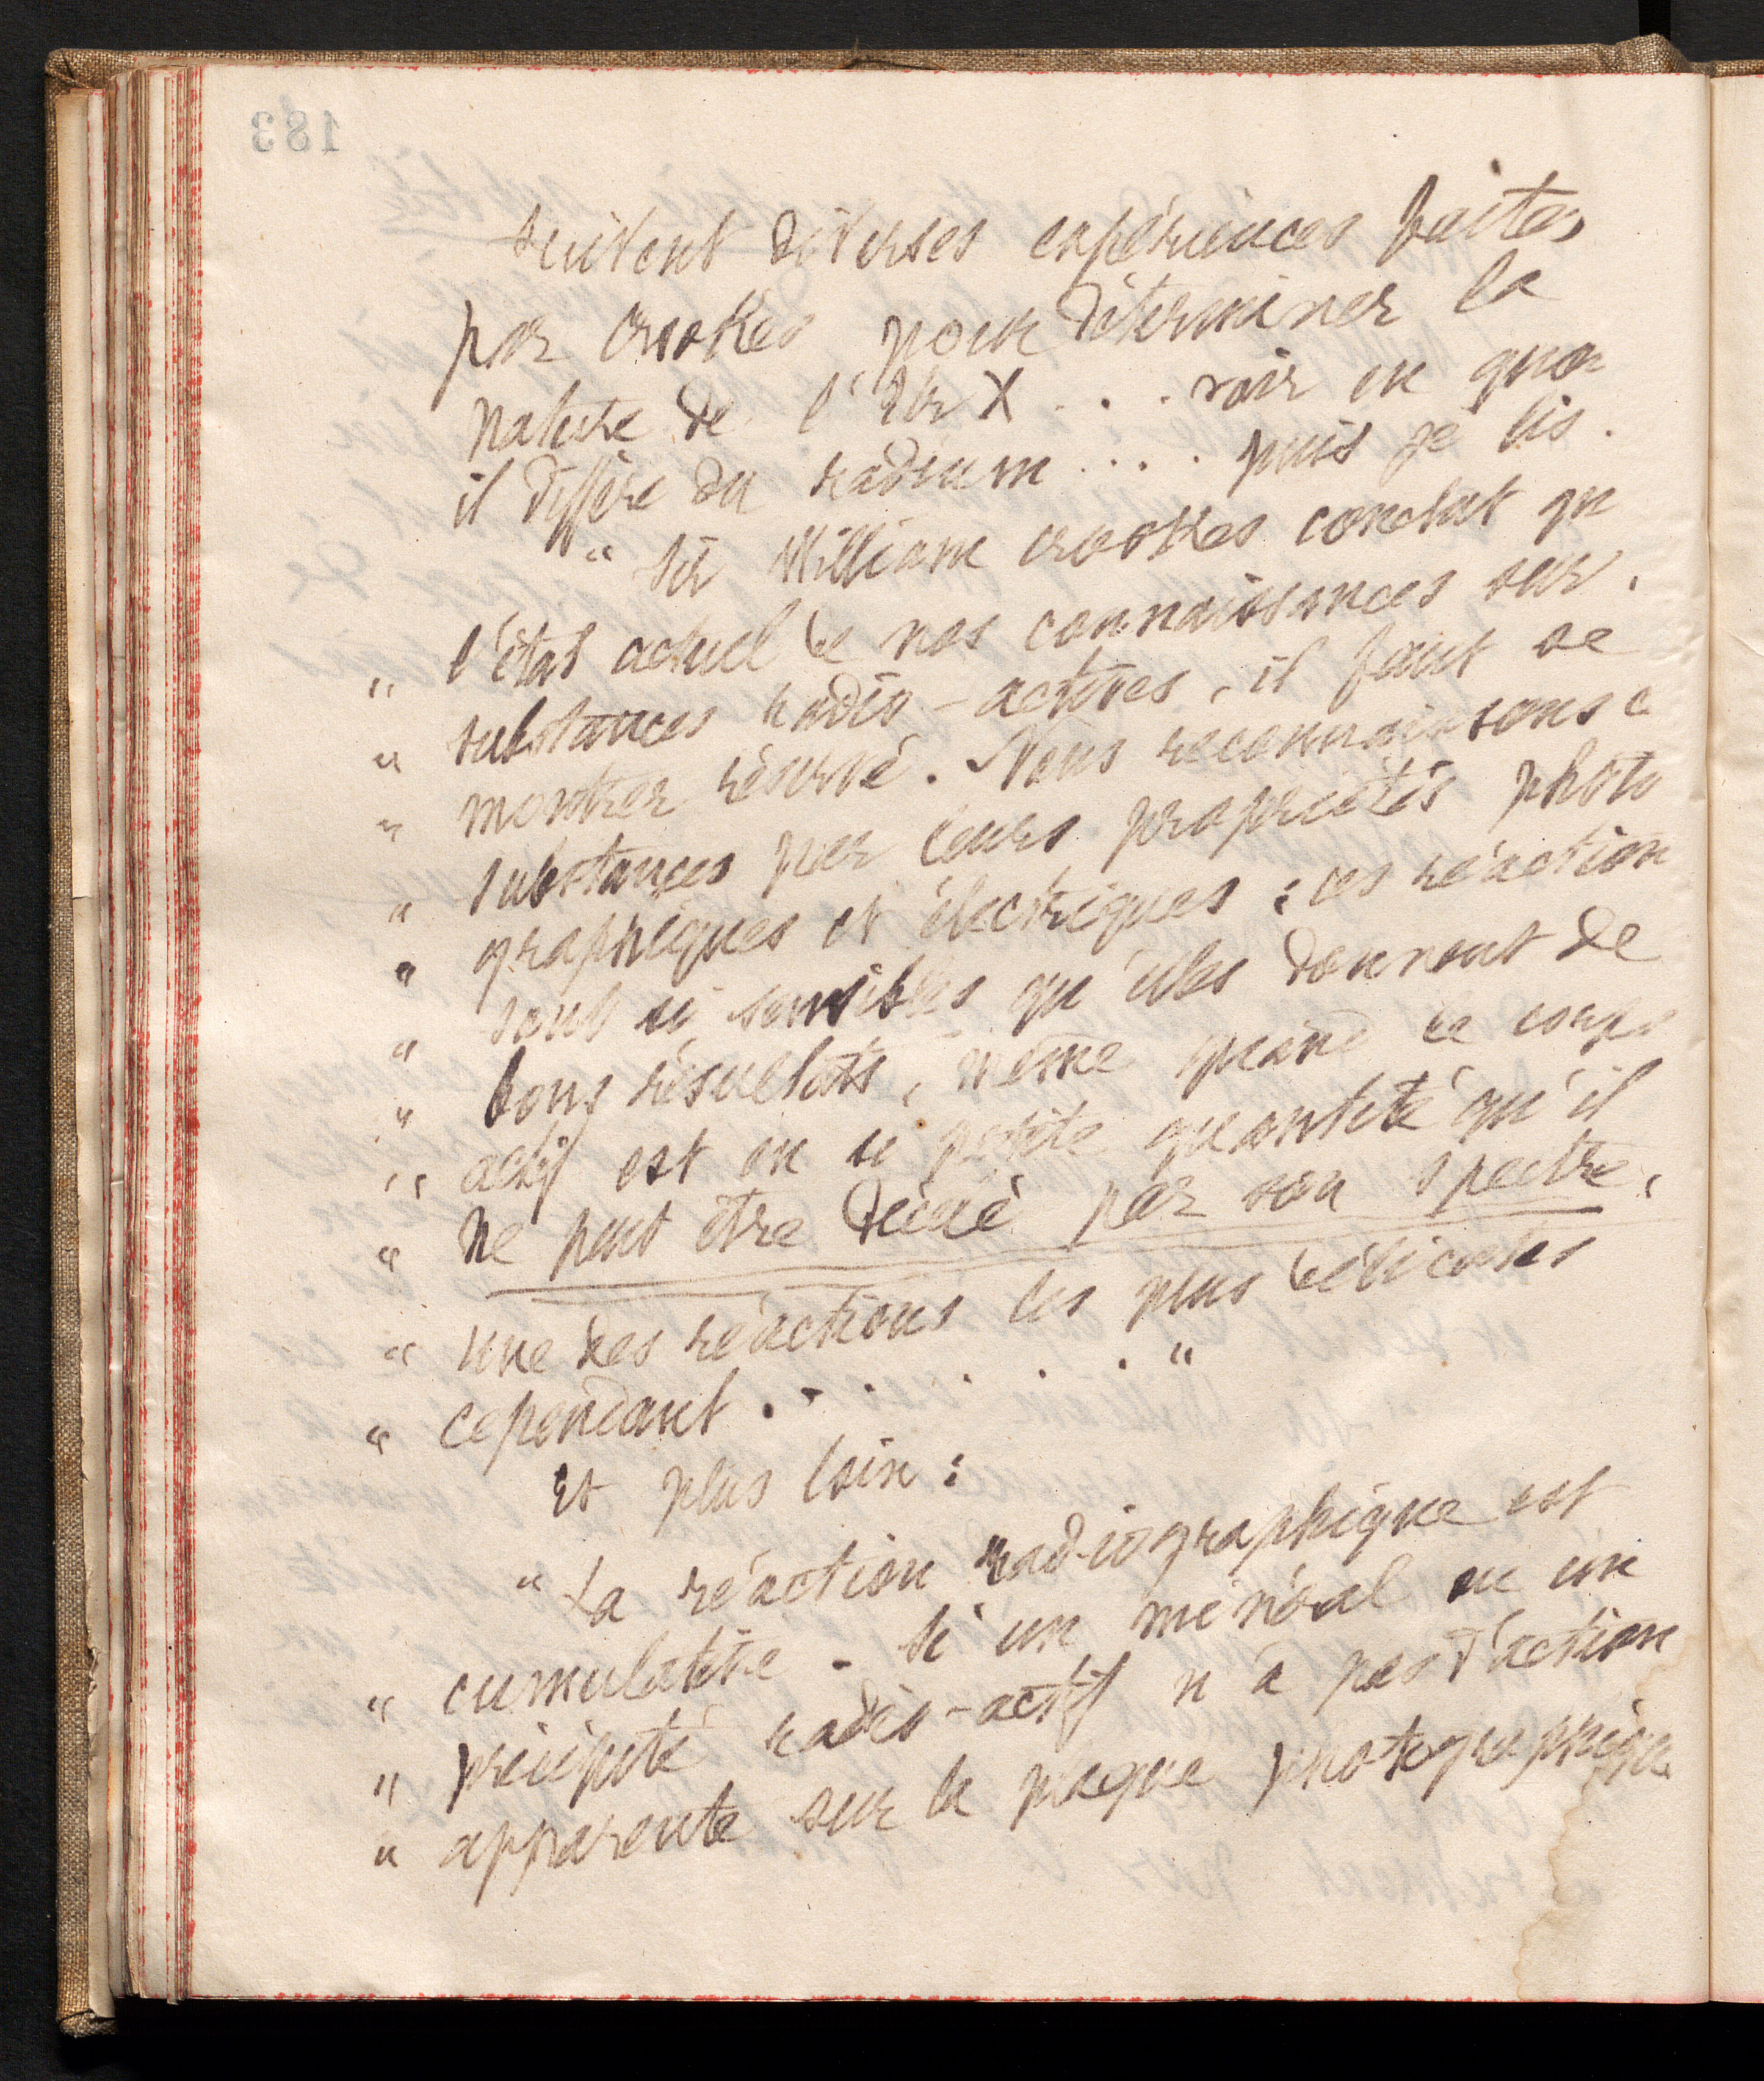 183
suivent diverses expériences faites
par Crookes pour déterminer la
nature de l'Ur X . . . voir en quoi
il diffère du radium . . . . puis je lis .
" Sir William Crookes conclut qu
" l'état actuel de nos connaissances sur
" substances radio-actives, il faut se
" montrer réservé. Nous reconnaissons c
" substances par leurs propriétés photo
" graphiques et électriques : ces réaction
" sont si sensibles qu'elles donnent de
" bons résultats, même quand le corps
" actif est en si petite quantité qu'il
" ne peut être décelé par son spectre,
" une des réactions les plus délicates
" cependant . . . . . . . "
Et plus loin :
" La réaction radiographique est
" cumulative . Si un minéral ou un
" précipité radio-actif n'a pas d'action
" apparente sur la plaque photographique